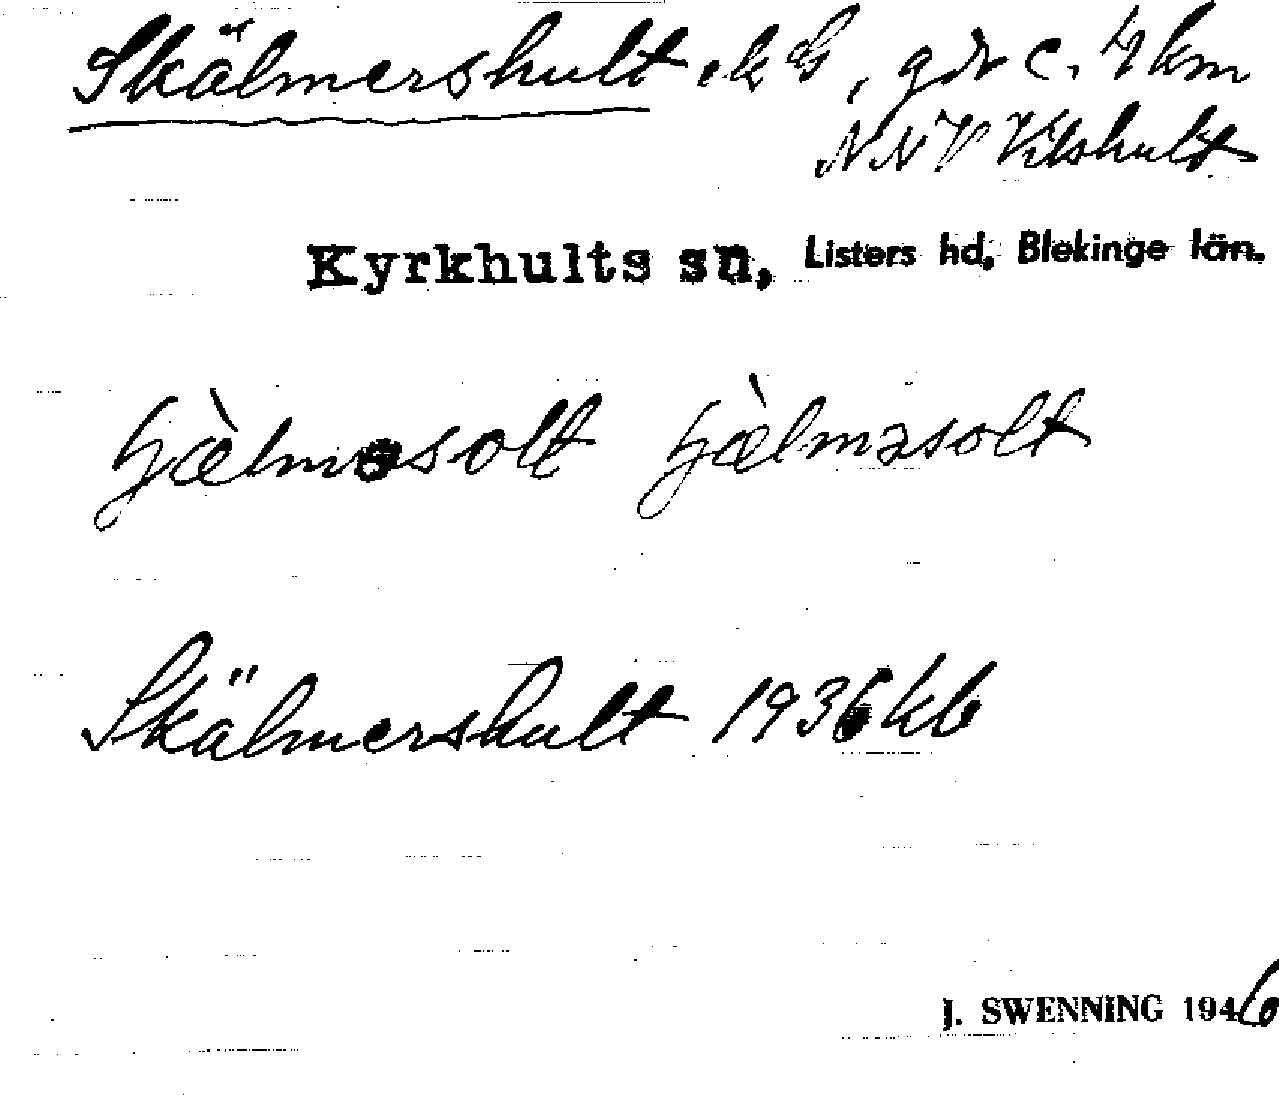 Skälmershult, gdr c. 4 km
NNV Vilshult
Kyrkhults sn, Listers hd, Blekinge län.
hjæ̀lməsolt hjæ̀lməsolt
Skälmershult 1936 kb
J. SWENNING 1946